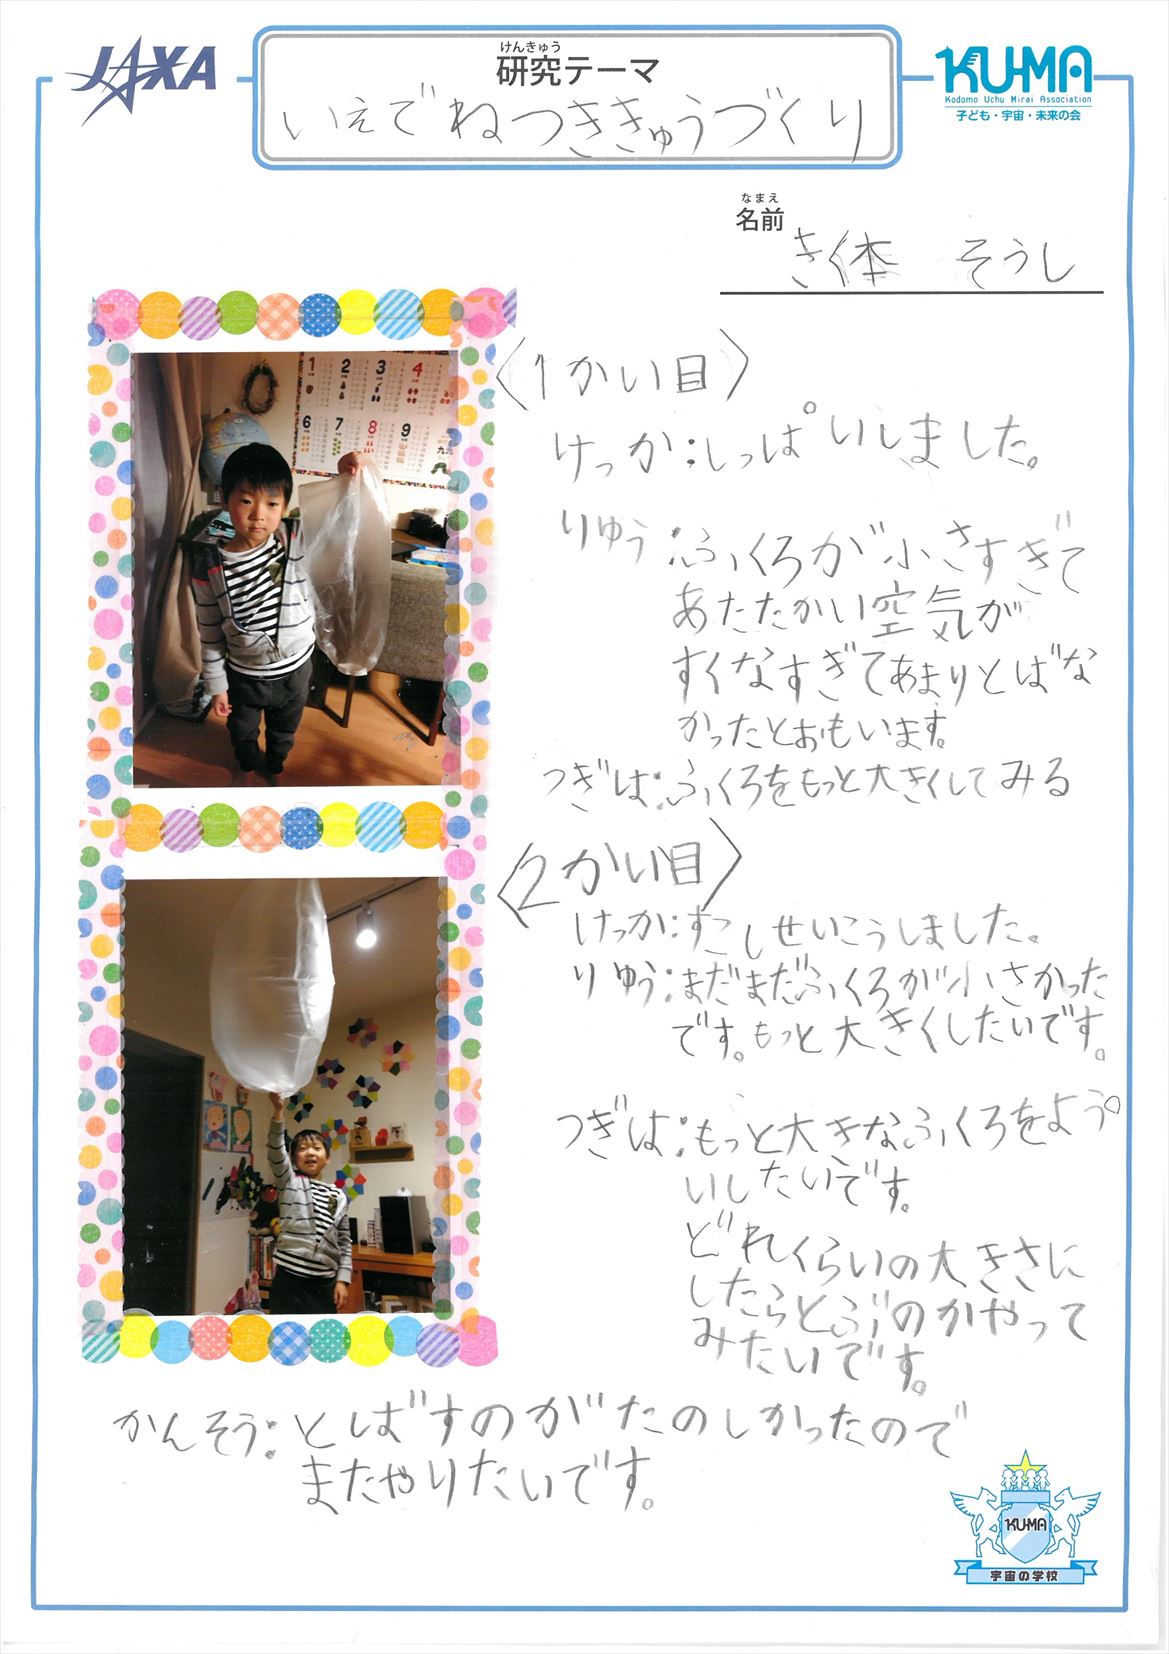 JAXA
けんきゅう
研究テーマ
KU-MA
Kodomo Uchu Mirai Association
子ども・宇宙・未来の会
いえでねつききゅうづくり
なまえ
名前
きく本 そうし
〈1かい目〉
けっか:しっぱいしました。
りゆう:ふくろが小さすぎて
あたたかい空気が
すくなすぎてあまりとばな
かったとおもいます。
つぎは:ふくろをもっと大きくしてみる
〈2かい目〉
けっか:すこしせいこうしました。
りゆう:まだまだふくろが小さかった
です。もっと大きくしたいです。
つぎは:もっと大きなふくろをよう
いしたいです。
どれくらいの大きさに
したらとぶのかやって
みたいです。
かんそう:とばすのがたのしかったので
またやりたいです。
1 2 3 4
6 7 8 9
KU-MA
宇宙の学校